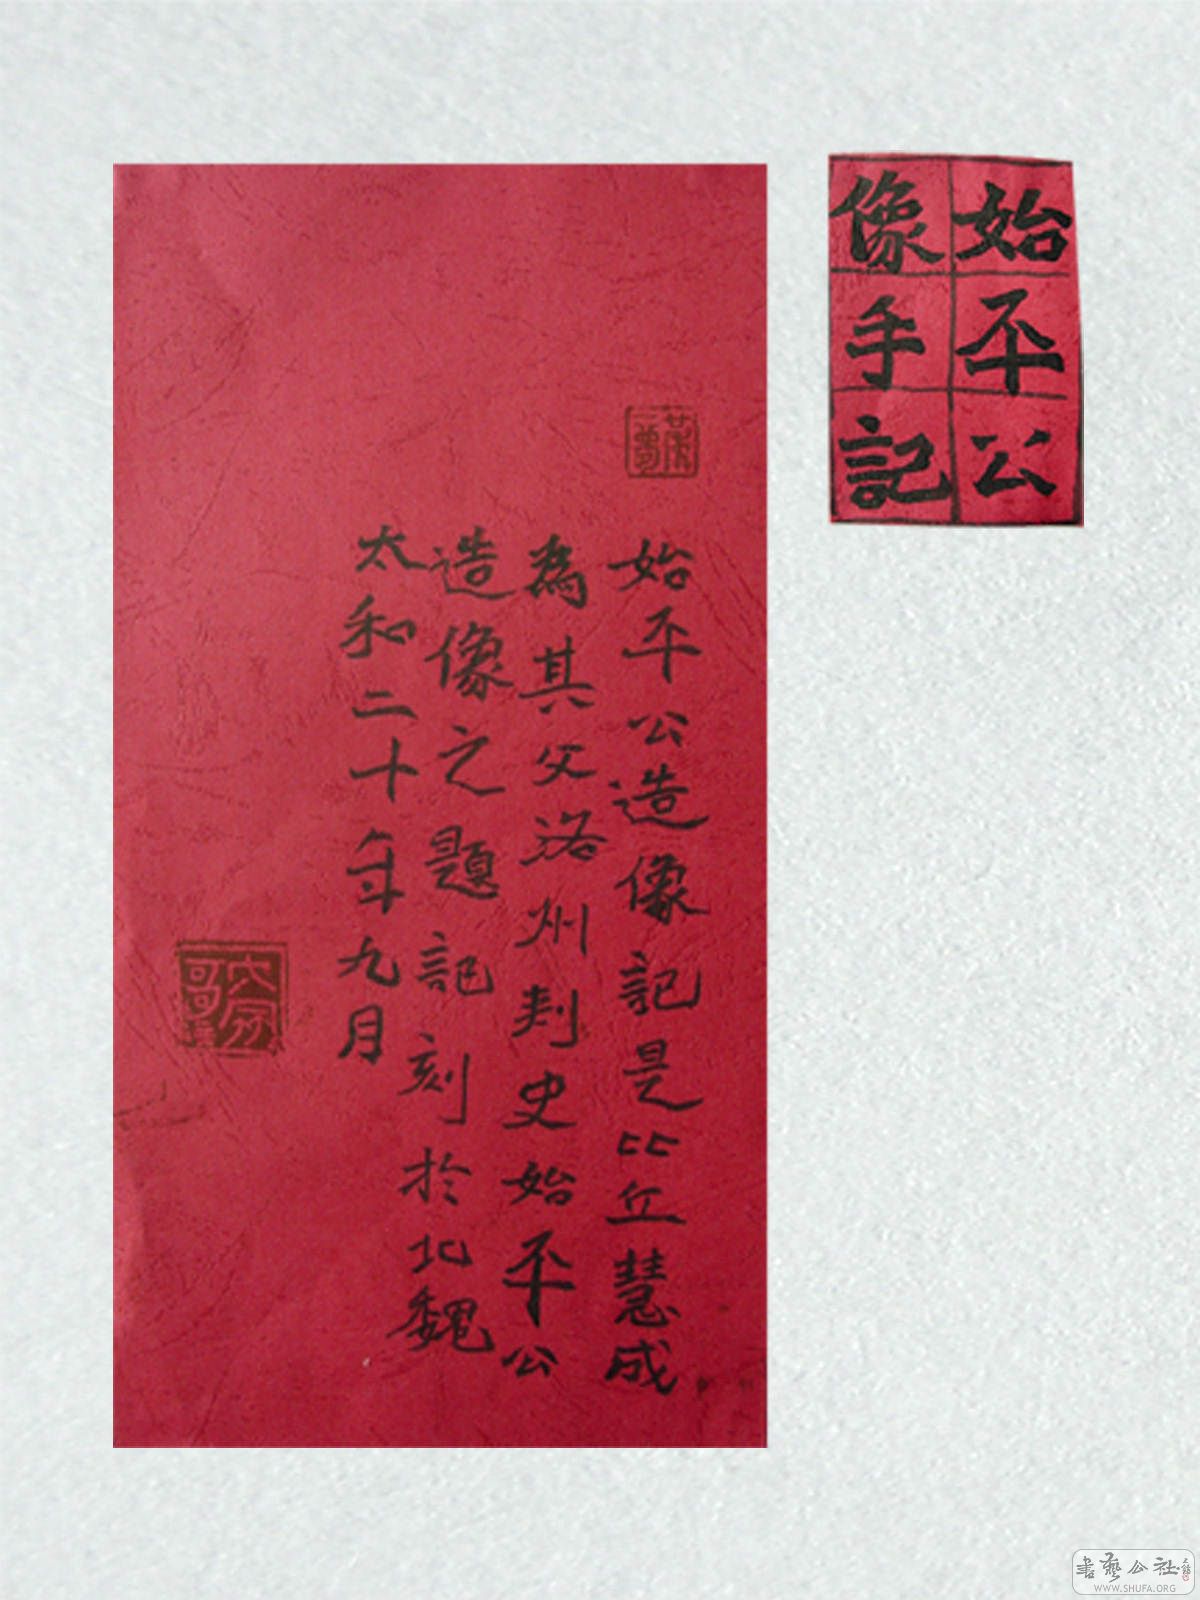 始平公
像手記
始平公造像記是比丘慧成
為其父洛州刺史始平公
造像之題記刻於北魏
太和二十年九月
書藝公社
WWW.SHUFA.ORG